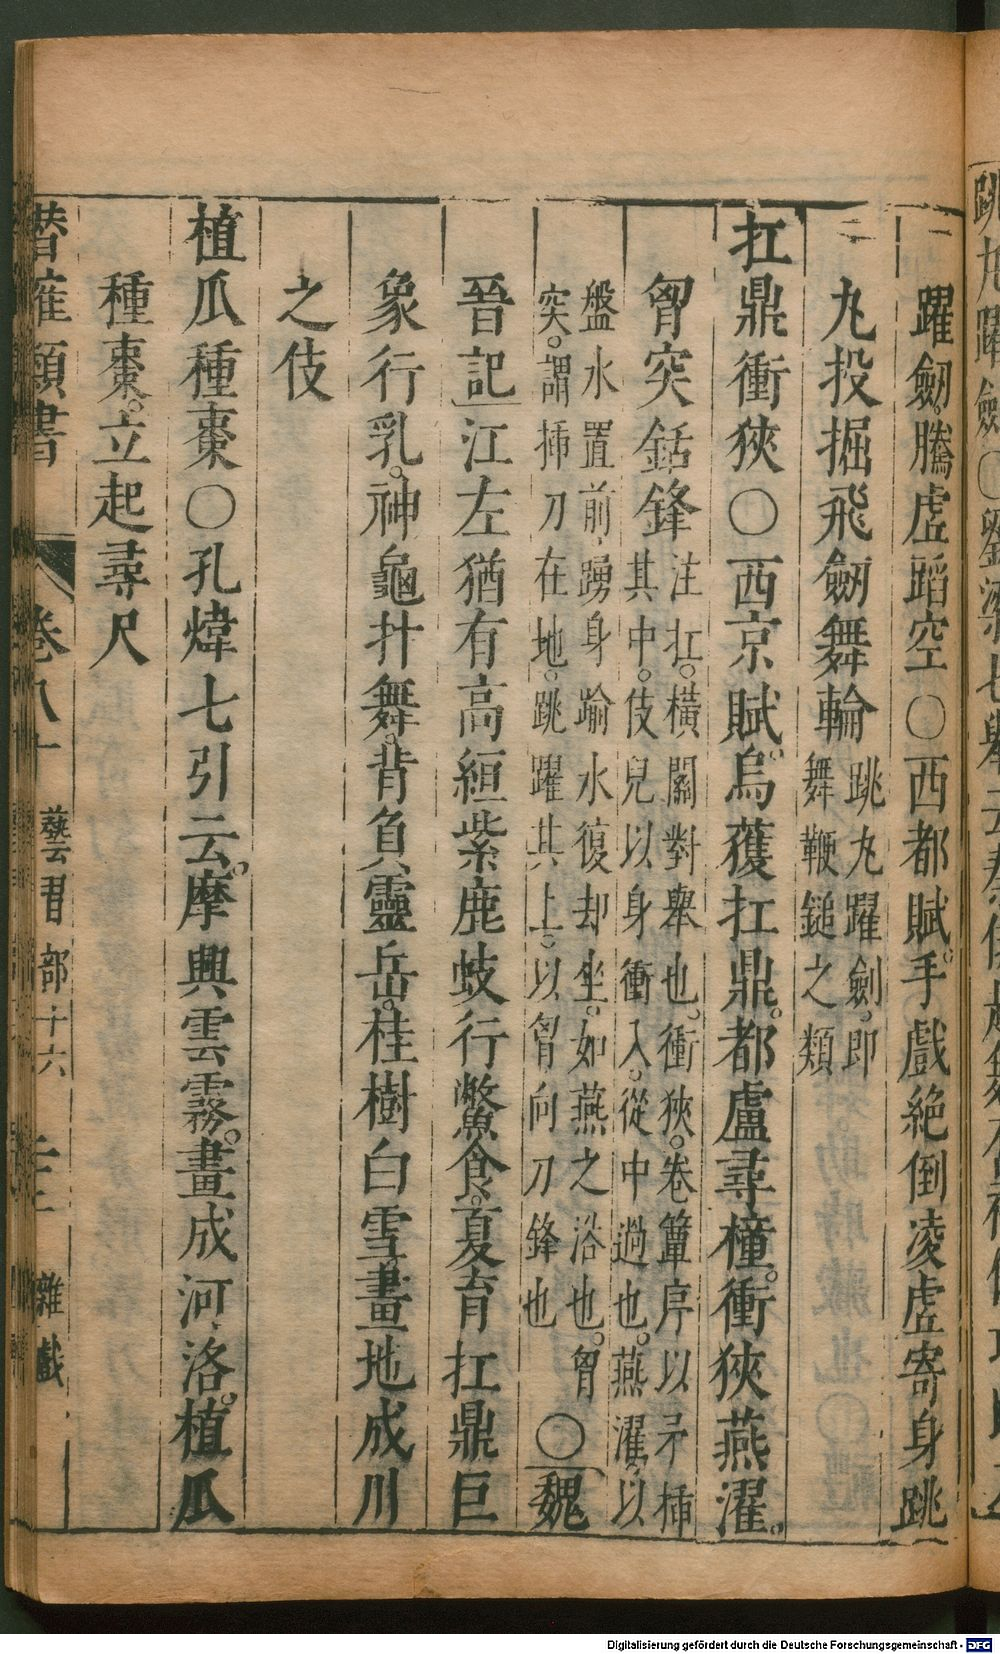 躍劒。騰虛蹈空〇西都賦。手戲絶倒凌虛寄身跳
丸投掘飛劒舞輪
跳丸躍劍。即
舞鞭鎚之類
扛鼎衝狹〇西京賦。烏獲扛鼎。都盧尋橦。衝狹燕濯。
胷突銛鋒
注扛。橫關對舉也。衝狹。卷簟序以矛揷
其中。伎兒以身衝入。從中過也。燕濯。以
盤水置前，踴身踰水復却坐。如燕之浴也。胷
突。謂揷刀在地。跳躍其上。以胷向刀鋒也
〇魏
晉記江左猶有高絙紫鹿蚑行鱉食。夏育扛鼎巨
象行乳。神龜抃舞。背負靈岳。桂樹白雪。畫地成川
之伎
植瓜種棗〇孔煒七引云。摩興雲霧。畫成河洛。植瓜
種棗。立起尋尺
潛確類書 卷八十 藝習部十六 雜戲
Digitalisierung gefördert durch die Deutsche Forschungsgemeinschaft - DFG